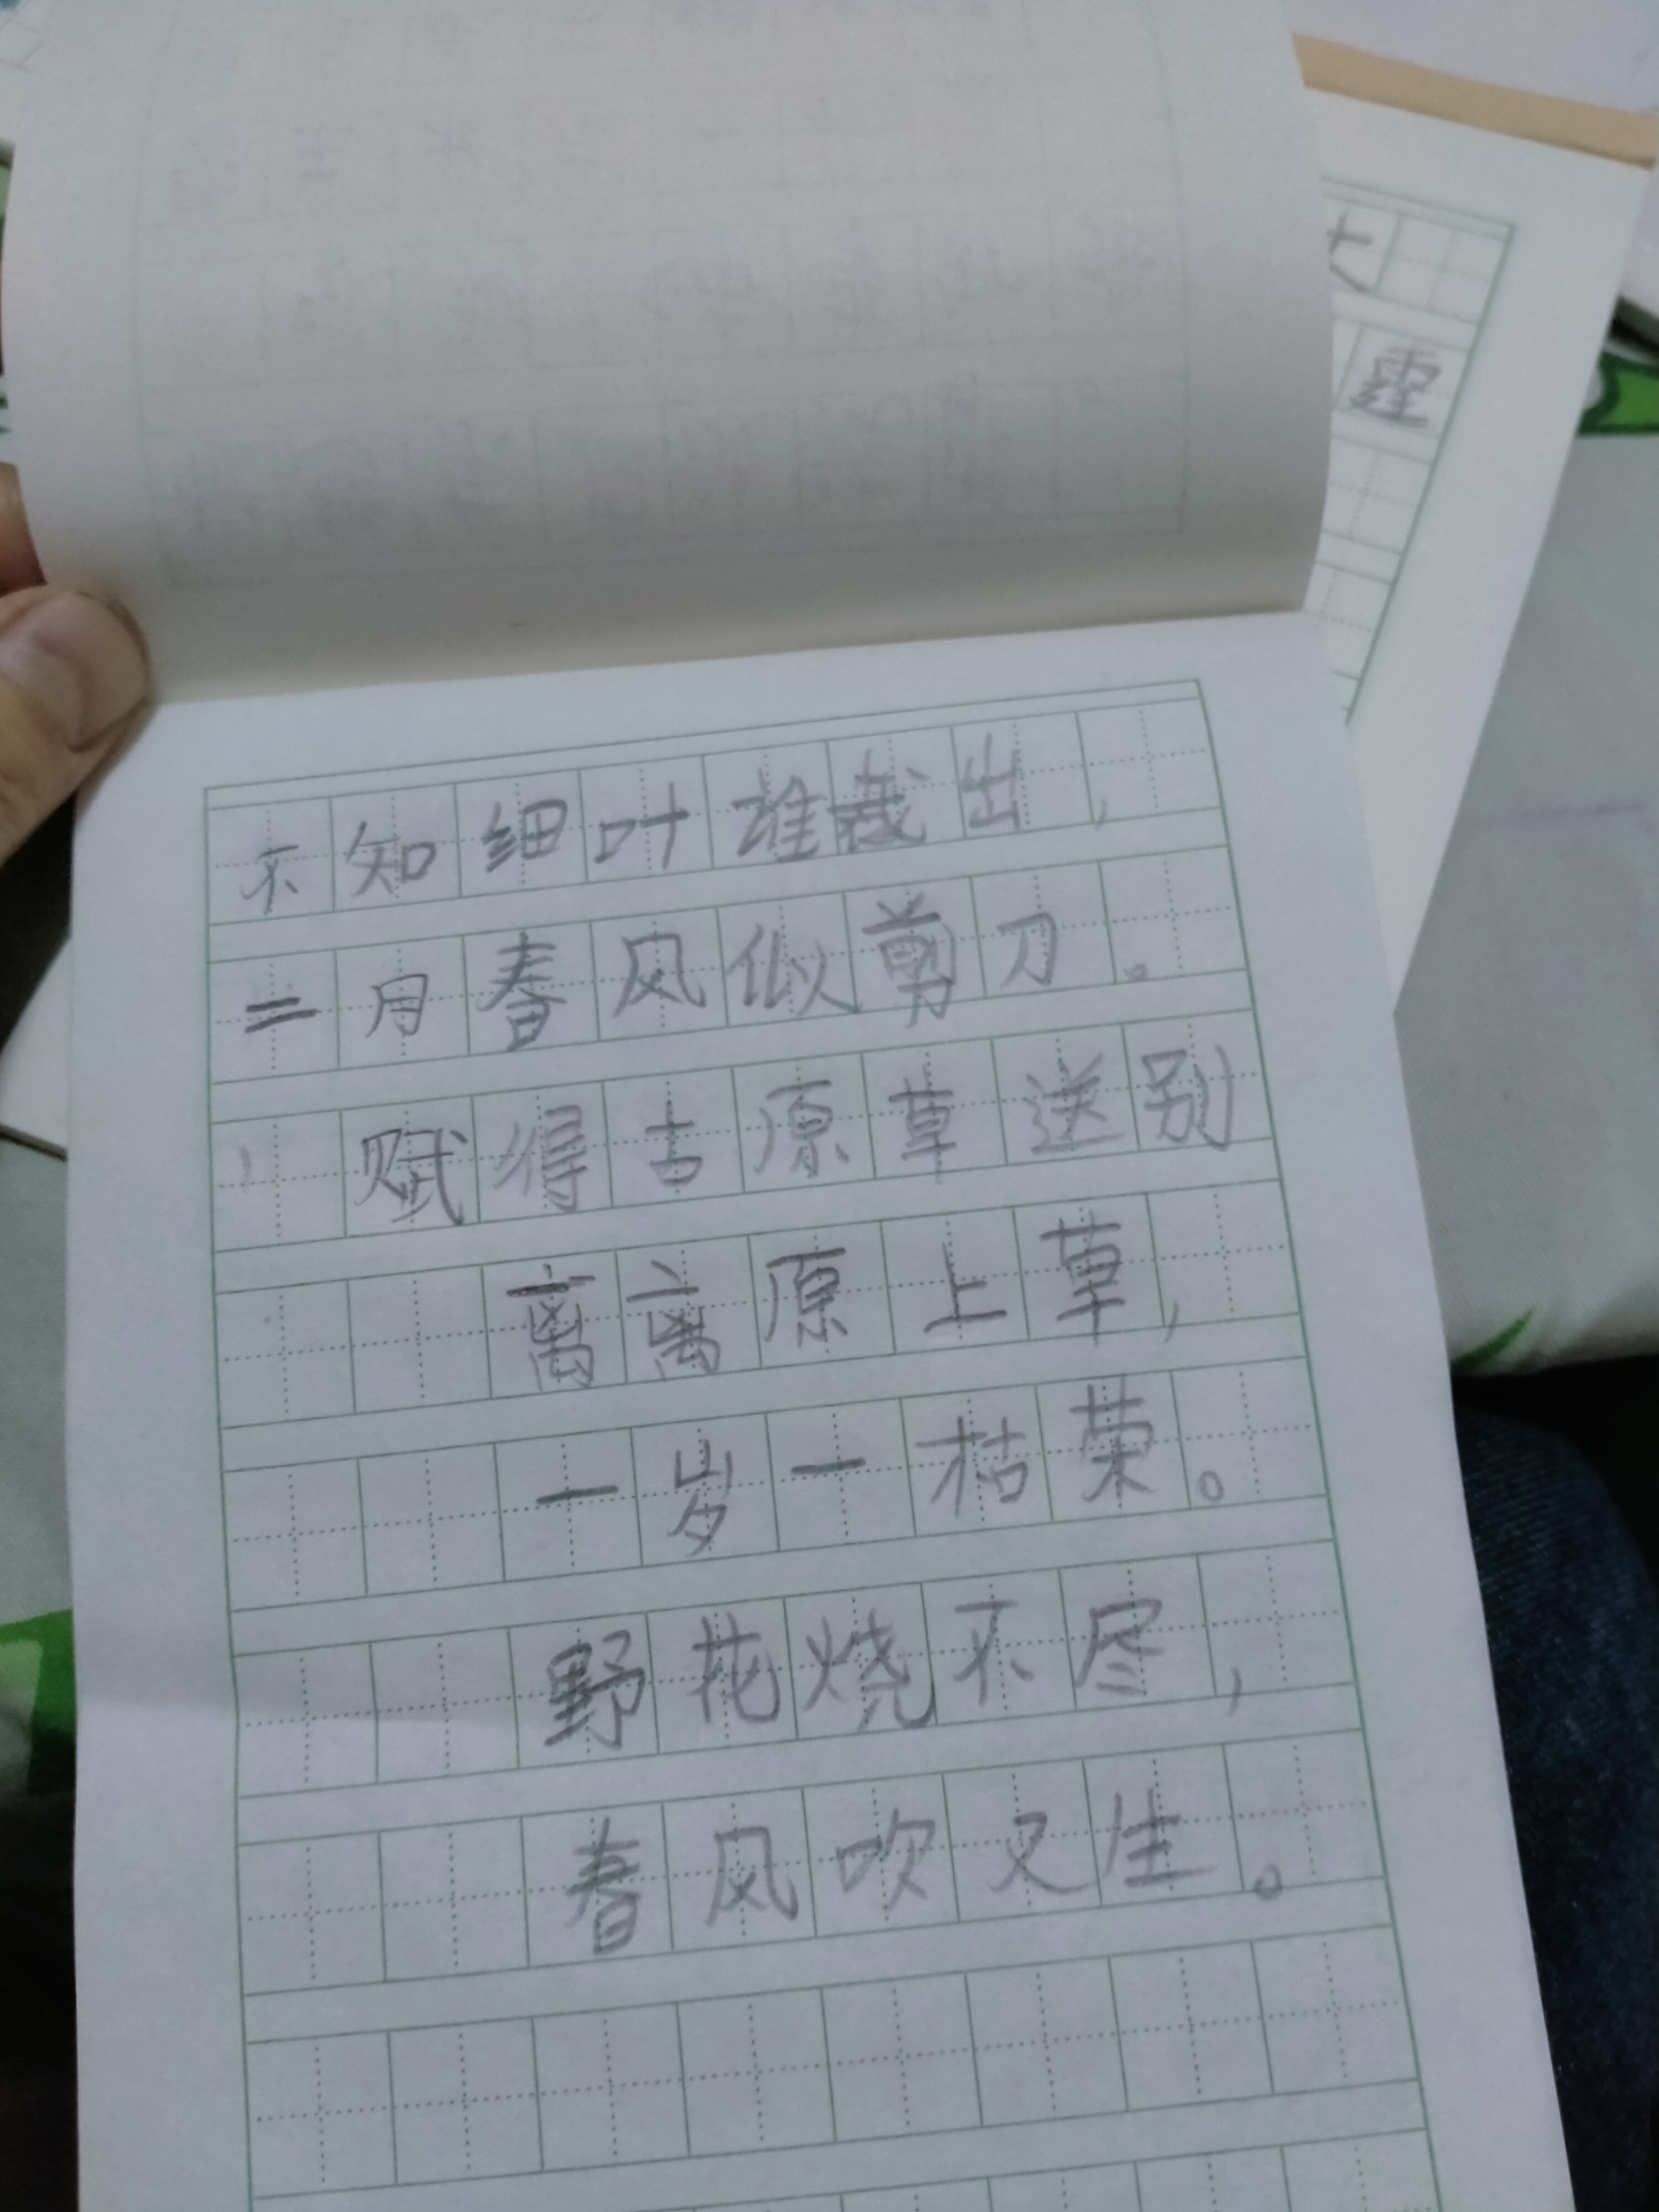 不知细叶谁裁出，
二月春风似剪刀。
赋得古原草送别
离离原上草，
一岁一枯荣。
野花烧不尽，
春风吹又生。